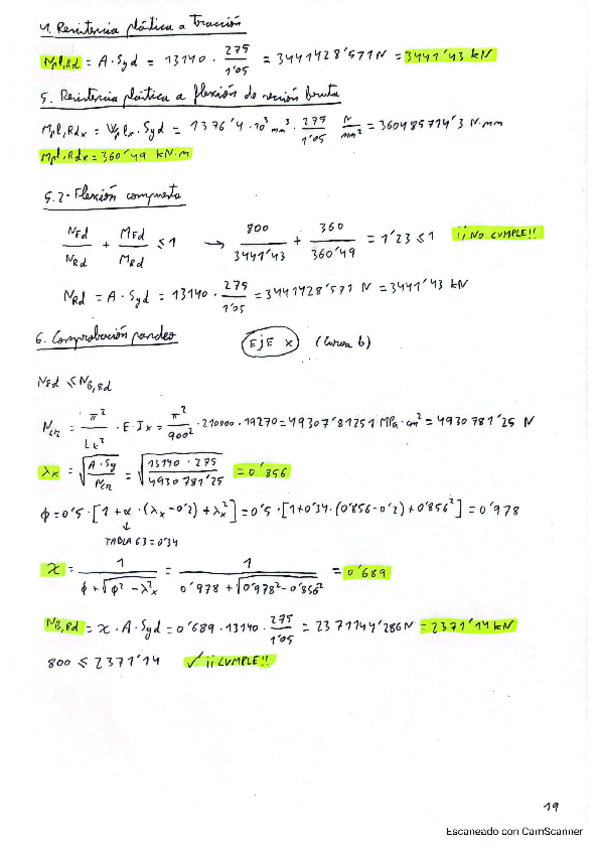 4. Resistencia plástica a tracción
Npl,Rd = A · Syd = 13140 · 275/1'05 = 3441428'571 N = 3441'43 kN
5. Resistencia plástica a flexión de sección bruta
Mpl,Rdx = Wplx · Syd = 1376'4 · 10³ mm³ · 275/1'05 N/mm² = 360485714'3 N·mm
Mpl,Rdx = 360'49 kN·m
5.2- Flexión compuesta
NEd/NRd + MEd/MRd ≤ 1 → 800/3441'43 + 360/360'49 = 1'23 ≤ 1 ¡¡NO CUMPLE!!
NRd = A · Syd = 13140 · 275/1'05 = 3441428'571 N = 3441'43 kN
6. Comprobación pandeo EjE x (Curva b)
NEd ≤ NB,Rd
Ncr = π²/Lk² · E · Ix = π²/900² · 210000 · 19270 = 49307'81251 MPa·cm² = 4930781'25 N
λx = √(A·Sy/Ncr) = √(13140·275/4930781'25) = 0'856
ϕ = 0'5 · [1 + α · (λx - 0'2) + λx²] = 0'5 · [1 + 0'34 · (0'856 - 0'2) + 0'856²] = 0'978
↓
TABLA 6.3 = 0'34
χ = 1/(ϕ + √(ϕ² - λ²x)) = 1/(0'978 + √(0'978² - 0'856²)) = 0'689
NB,Rd = χ · A · Syd = 0'689 · 13140 · 275/1'05 = 2371144'286 N = 2371'14 kN
800 ≤ 2371'14 ✓ ¡¡CUMPLE!!
19
Escaneado con CamScanner